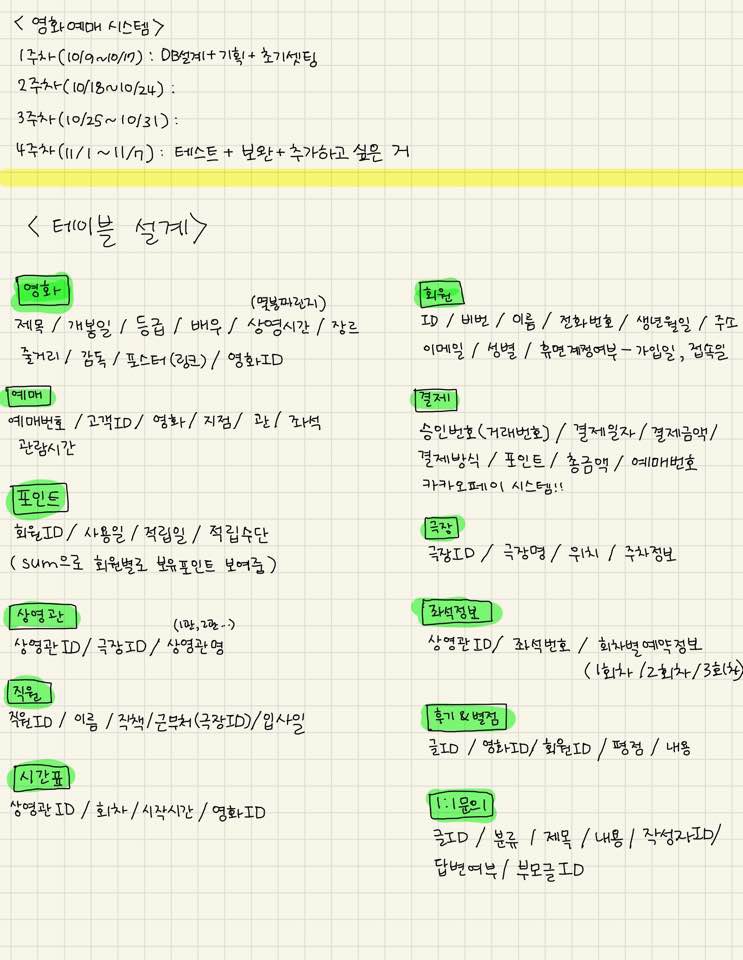 < 영화예매 시스템 >
1주차(10/9~10/17) : DB설계+기획+초기셋팅
2주차(10/18~10/24) :
3주차(10/25~10/31) :
4주차(11/1~11/7) : 테스트 + 보완+추가하고 싶은 거
< 테이블 설계 >
영화
(몇분짜린지)
제목 / 개봉일 / 등급 / 배우 / 상영시간 / 장르
줄거리 / 감독 / 포스터(링크) / 영화ID
예매
예매번호 / 고객ID / 영화 / 지점 / 관 / 좌석
관람시간
포인트
회원ID / 사용일 / 적립일 / 적립수단
(sum으로 회원별로 보유포인트 보여줌)
상영관
(1관, 2관...)
상영관ID / 극장ID / 상영관명
직원
직원ID / 이름 / 직책 / 근무처(극장ID) / 입사일
시간표
상영관ID / 회차 / 시작시간 / 영화ID
회원
ID / 비번 / 이름 / 전화번호 / 생년월일 / 주소
이메일 / 성별 / 휴면계정여부 - 가입일, 접속일
결제
승인번호(거래번호) / 결제일자 / 결제금액 /
결제방식 / 포인트 / 총금액 / 예매번호
카카오페이 시스템!!
극장
극장ID / 극장명 / 위치 / 주차정보
좌석정보
상영관ID / 좌석번호 / 회차별예약정보
(1회차 / 2회차 / 3회차)
후기&별점
글ID / 영화ID / 회원ID / 평점 / 내용
1:1문의
글ID / 분류 / 제목 / 내용 / 작성자ID /
답변여부 / 부모글ID